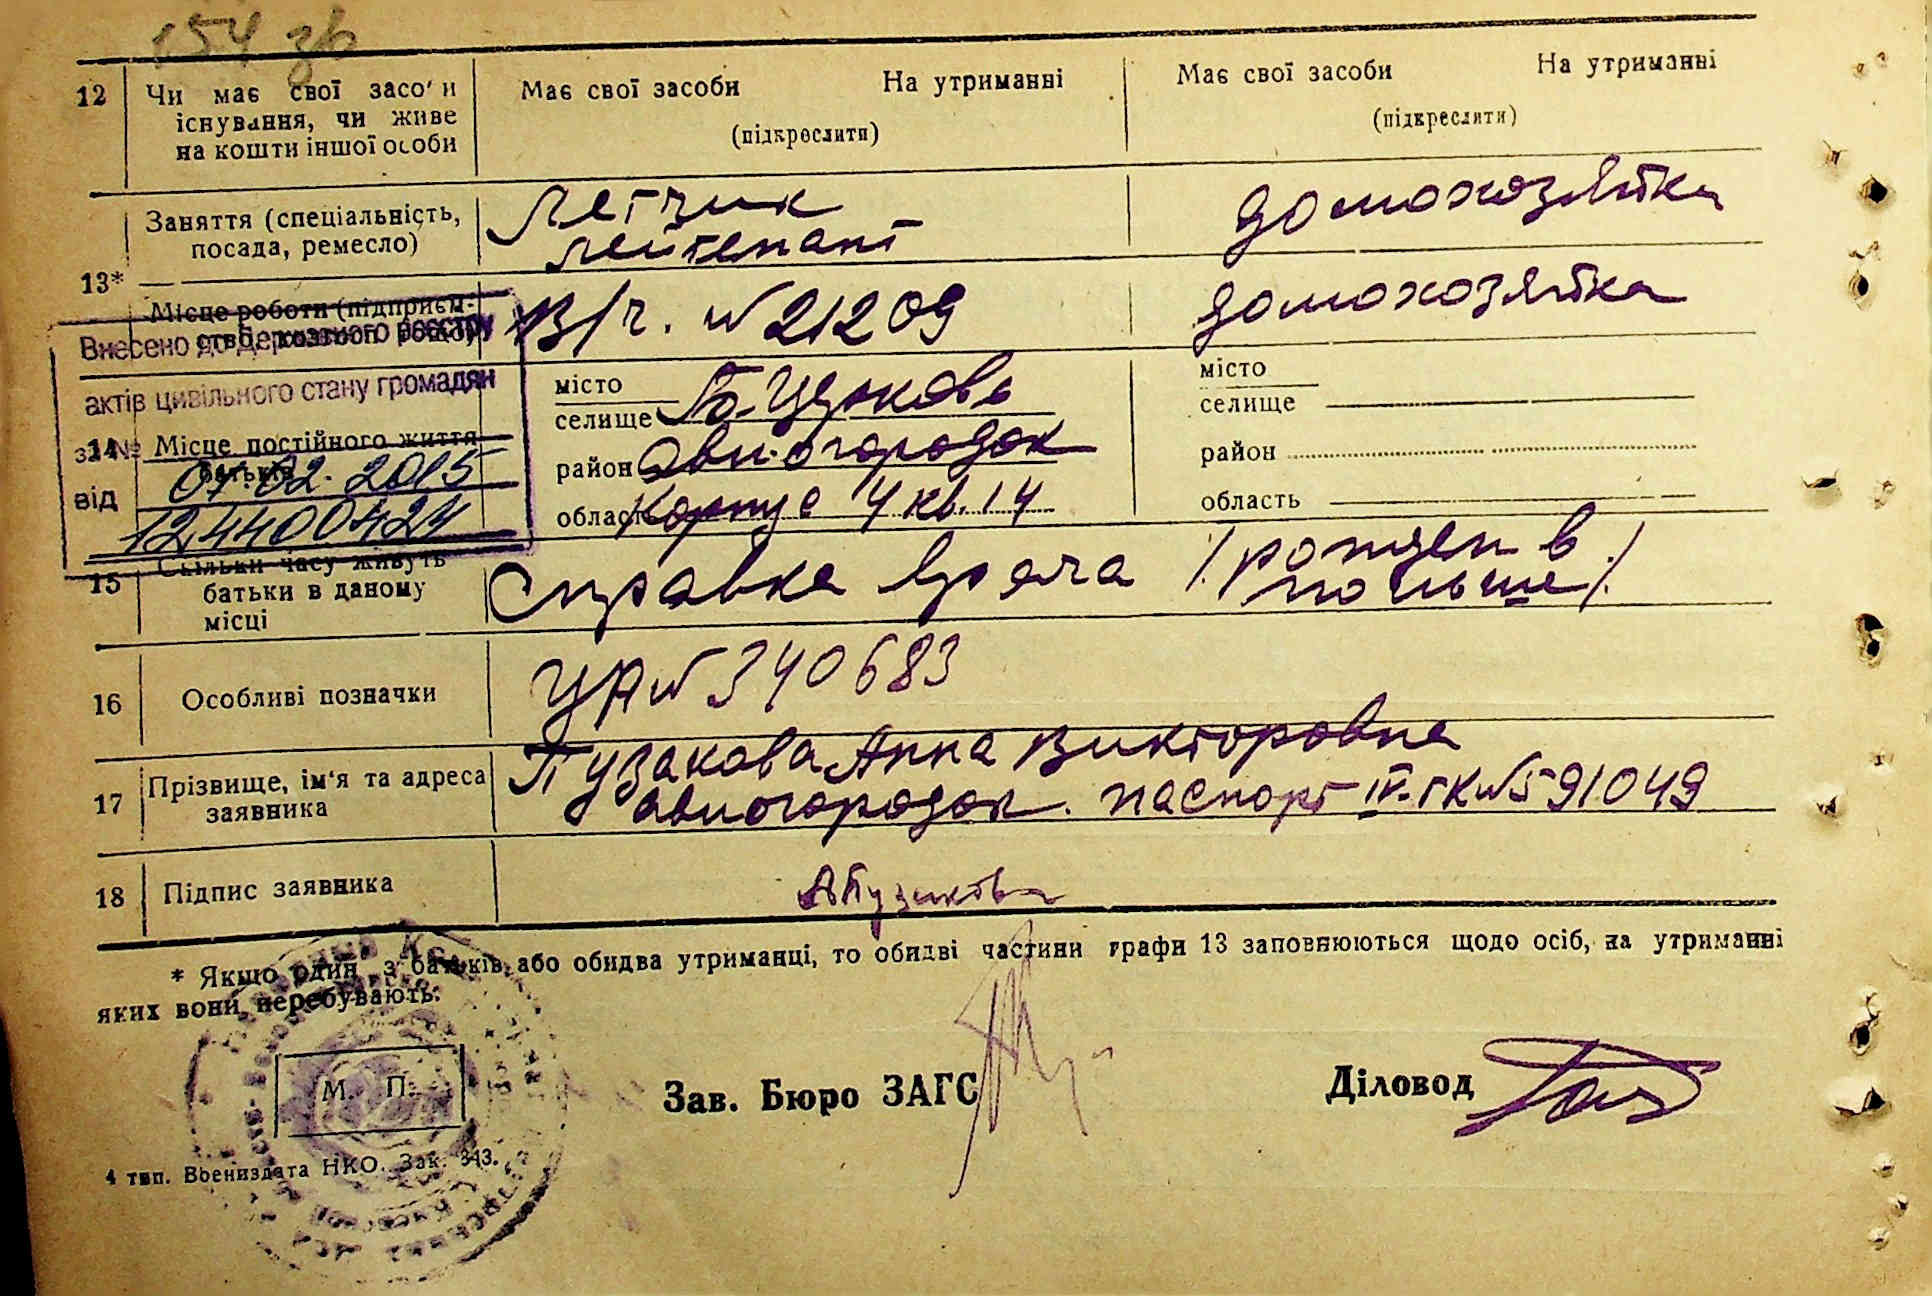 154 зв
12 Чи має свої засоби Має свої засоби На утриманні Має свої засоби На утриманні
існування, чи живе
на кошти іншої особи (підкреслити) (підкреслити)
Заняття (спеціальність, Летчик домохозяйка
посада, ремесло) лейтенант
13*
Місце роботи (підприєм- В/ч. № 21209 домохозяйка
Внесено до Державного реєстру
актів цивільного стану громадян
за №
від 07.02.2015
124400424
14 Місце постійного життя
батьків
місто Б-Церковь місто
селище селище
район авиогородок район
область Корпус 4 кв. 14 область
15 Скільки часу живуть Справка врача /рожден в
батьки в даному Польше/
місці
16 Особливі позначки УА№ 340683
17 Прізвище, ім'я та адреса Пузакова Анна Викторовна
заявника авиогородок. паспорт IV-ГК №591049
18 Підпис заявника АПузакова
* Якщо один з батьків або обидва утриманці, то обидві частини графи 13 заповнюються щодо осіб, на утриманні
яких вони перебувають.
М. П. Зав. Бюро ЗАГС Діловод
4 тип. Воениздата НКО. Зак. 343.